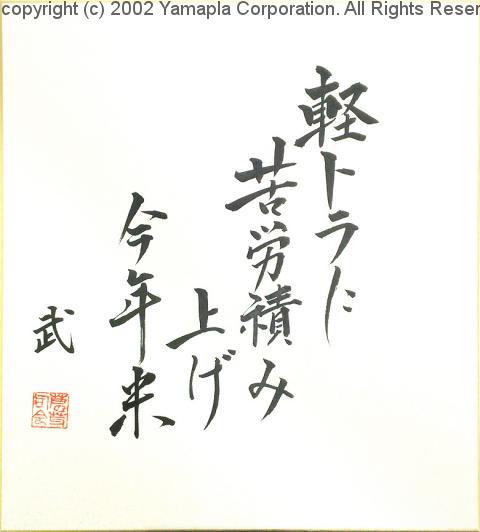 copyright (c) 2002 Yamapla Corporation. All Rights Reser
軽トラに
苦労積み
上げ
今年米
武